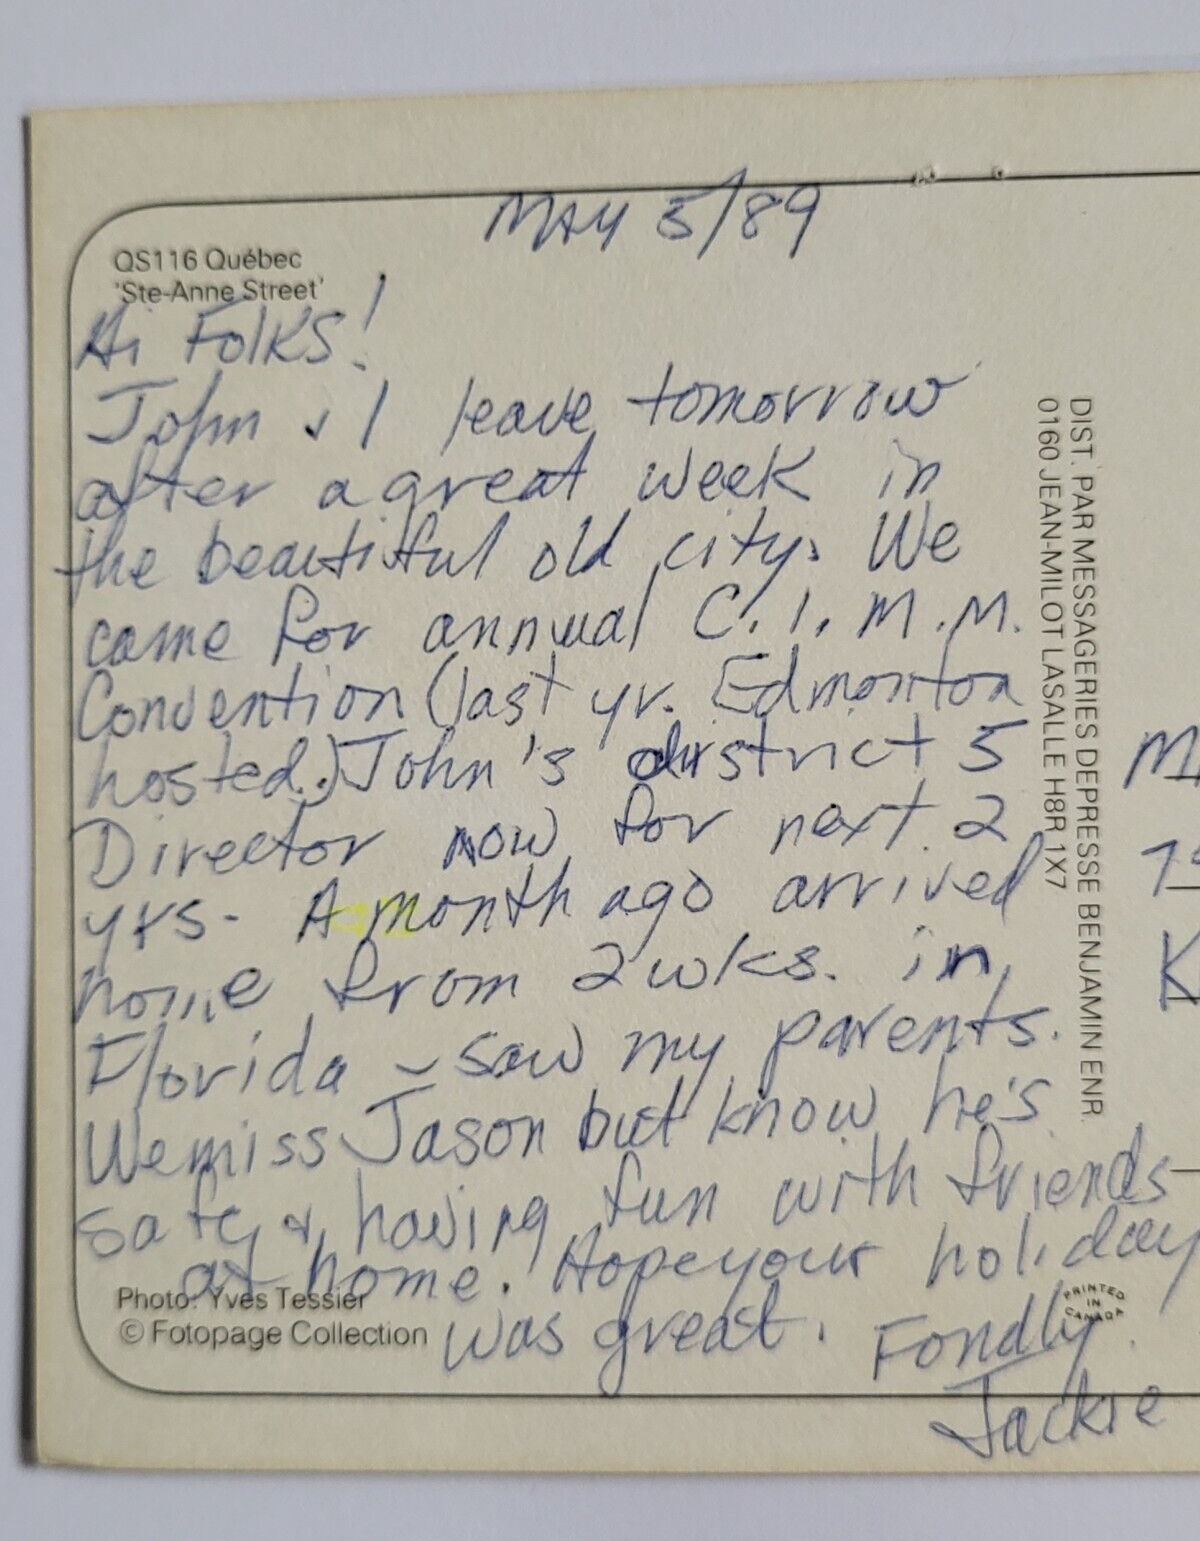 MAY 5/89
QS116 Québec
'Ste-Anne Street'
Hi Folks!
John & I leave tomorrow
after a great week in
the beautiful old city. We
came for annual C.I.M.M.
Convention (last yr. Edmonton
hosted.) John's district 5
Director now for next 2
yrs. A month ago arrived
home from 2 wks. in
Florida – saw my parents.
We miss Jason but know he's
safe & having fun with friends
at home. Hope your holiday
was great. Fondly
Jackie
Photo: Yves Tessier
© Fotopage Collection
DIST. PAR MESSAGERIES DEPRESSE BENJAMIN ENR.
0160 JEAN-MILOT LASALLE H8R 1X7
PRINTED
IN
CANADA